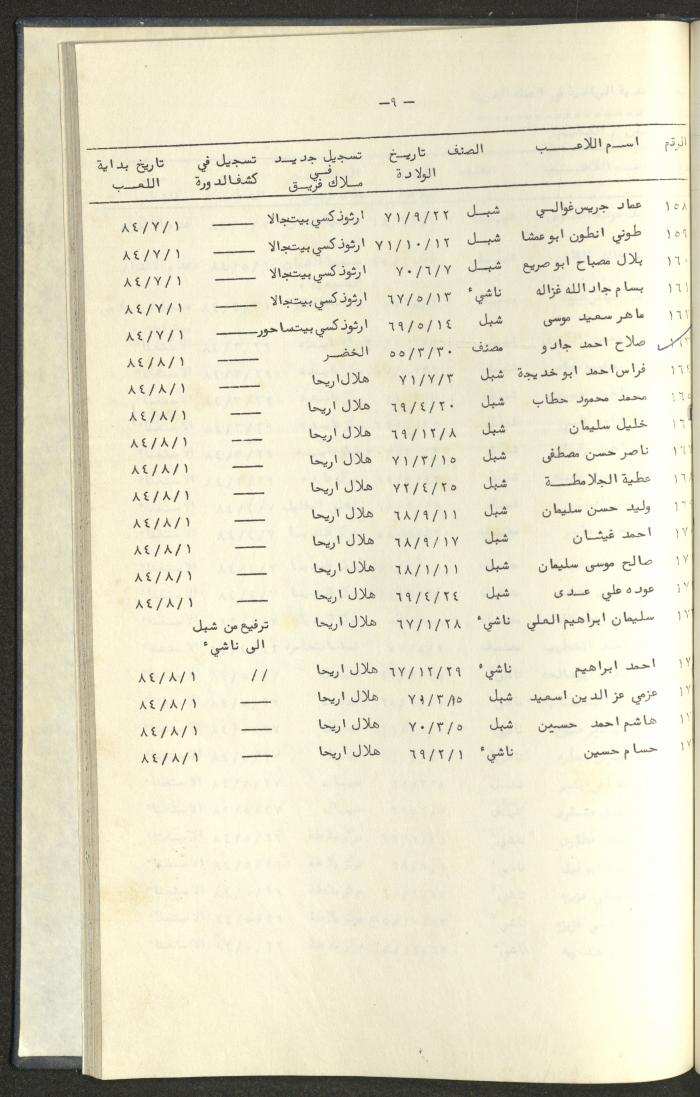 -٩-
الرقم اسم اللاعب الصنف تاريخ الولادة تسجيل جديد في ملاك فريق تسجيل في كشف الدورة تاريخ بداية اللعب
١٥٨ عماد جريس غوالي شبل ٧١/٩/٢٢ ارثوذكسي بيتجالا — ٨٤/٧/١
١٥٩ طوني انطون ابو عمشا شبل ٧١/١٠/١٢ ارثوذكسي بيتجالا — ٨٤/٧/١
١٦٠ بلال مصباح ابو صريع شبل ٧٠/٦/٧ ارثوذكسي بيتجالا — ٨٤/٧/١
١٦١ بسام جاد الله غزاله ناشيء ٦٧/٥/١٣ ارثوذكسي بيتجالا — ٨٤/٧/١
١٦٢ ماهر سعيد موسى شبل ٦٩/٥/١٤ ارثوذكسي بيت ساحور — ٨٤/٧/١
١٦٣ صلاح احمد جادو مصنف ٥٥/٣/٣٠ الخضر — ٨٤/٨/١
١٦٤ فراس احمد ابو خديجة شبل ٧١/٧/٣ هلال اريحا — ٨٤/٨/١
١٦٥ محمد محمود حطاب شبل ٦٩/٤/٢٠ هلال اريحا — ٨٤/٨/١
١٦ خليل سليمان شبل ٦٩/١٢/٨ هلال اريحا — ٨٤/٨/١
١٦ ناصر حسن مصطفى شبل ٧١/٣/١٥ هلال اريحا — ٨٤/٨/١
١٦ عطية الجلامطة شبل ٧٢/٤/٢٥ هلال اريحا — ٨٤/٨/١
١٦ وليد حسن سليمان شبل ٦٨/٩/١١ هلال اريحا — ٨٤/٨/١
١٧ احمد غيثان شبل ٦٨/٩/١٧ هلال اريحا — ٨٤/٨/١
١٧ صالح موسى سليمان شبل ٦٨/١/١١ هلال اريحا — ٨٤/٨/١
١٧ عوده علي عدى شبل ٦٩/٤/٢٤ هلال اريحا — ٨٤/٨/١
١٧ سليمان ابراهيم العلي ناشيء ٦٧/١/٢٨ هلال اريحا ترفيع من شبل
الى ناشيء
١٧ احمد ابراهيم ناشيء ٦٧/١٢/٢٩ هلال اريحا // ٨٤/٨/١
١٧ عزمي عز الدين اسعيد شبل هلال اريحا — ٨٤/٨/١
١٧ هاشم احمد حسين شبل ٧٠/٣/٥ هلال اريحا — ٨٤/٨/١
١٧ حسام حسين ناشيء ٦٩/٢/١ هلال اريحا — ٨٤/٨/١